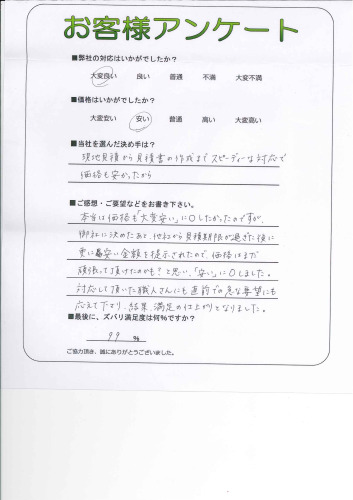 お客様アンケート
■弊社の対応はいかがでしたか?
大変良い 良い 普通 不満 大変不満
■価格はいかがでしたか?
大変安い 安い 普通 高い 大変高い
■当社を選んだ決め手は?
現地見積から見積書の作成までスピーディな対応で
価格も安かったから
■ご感想・ご要望などをお書き下さい。
本当は価格も「大変安い」に○したかったのですが、
御社に決めたあと、他社から見積期限が過ぎた後に
更に最安い金額を提示されたので、価格はまだ
頑張って頂けたのかも?と思い、「安い」に○しました。
対応して頂いた職人さんにも直前での急な要望にも
応えて下さり、結果、満足の仕上がりとなりました。
■最後に、ズバリ満足度は何%ですか?
99 %
ご協力頂き、誠にありがとうございました。